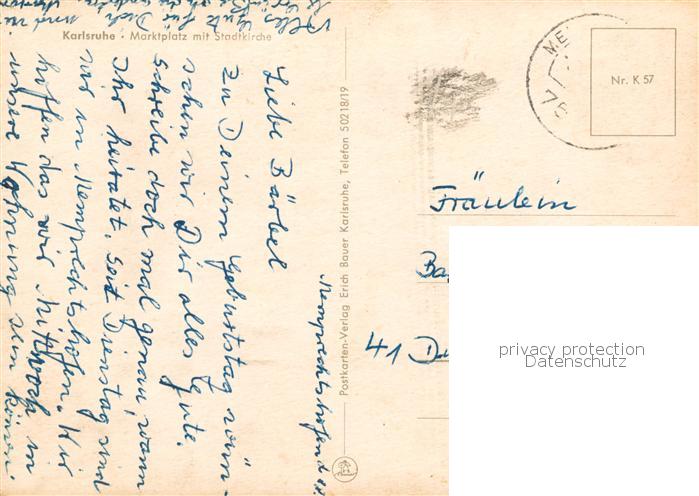 Karlsruhe · Marktplatz mit Stadtkirche
Memprechtshofen d.
Liebe Bärbel
Zu Deinem Geburtstag wün-
schen wir Dir alles Gute.
Schreibe doch mal genau, wann
Ihr heiratet. Seit Dienstag sind
wir in Memprechtshofen. Wir
hoffen das wir Mittwoch in
unsere Wohnung rein können.
Alles Gute für Dich
Postkarten-Verlag Erich Bauer Karlsruhe, Telefon 50218/19
Nr. K 57
Fräulein
41 Du
privacy protection
Datenschutz